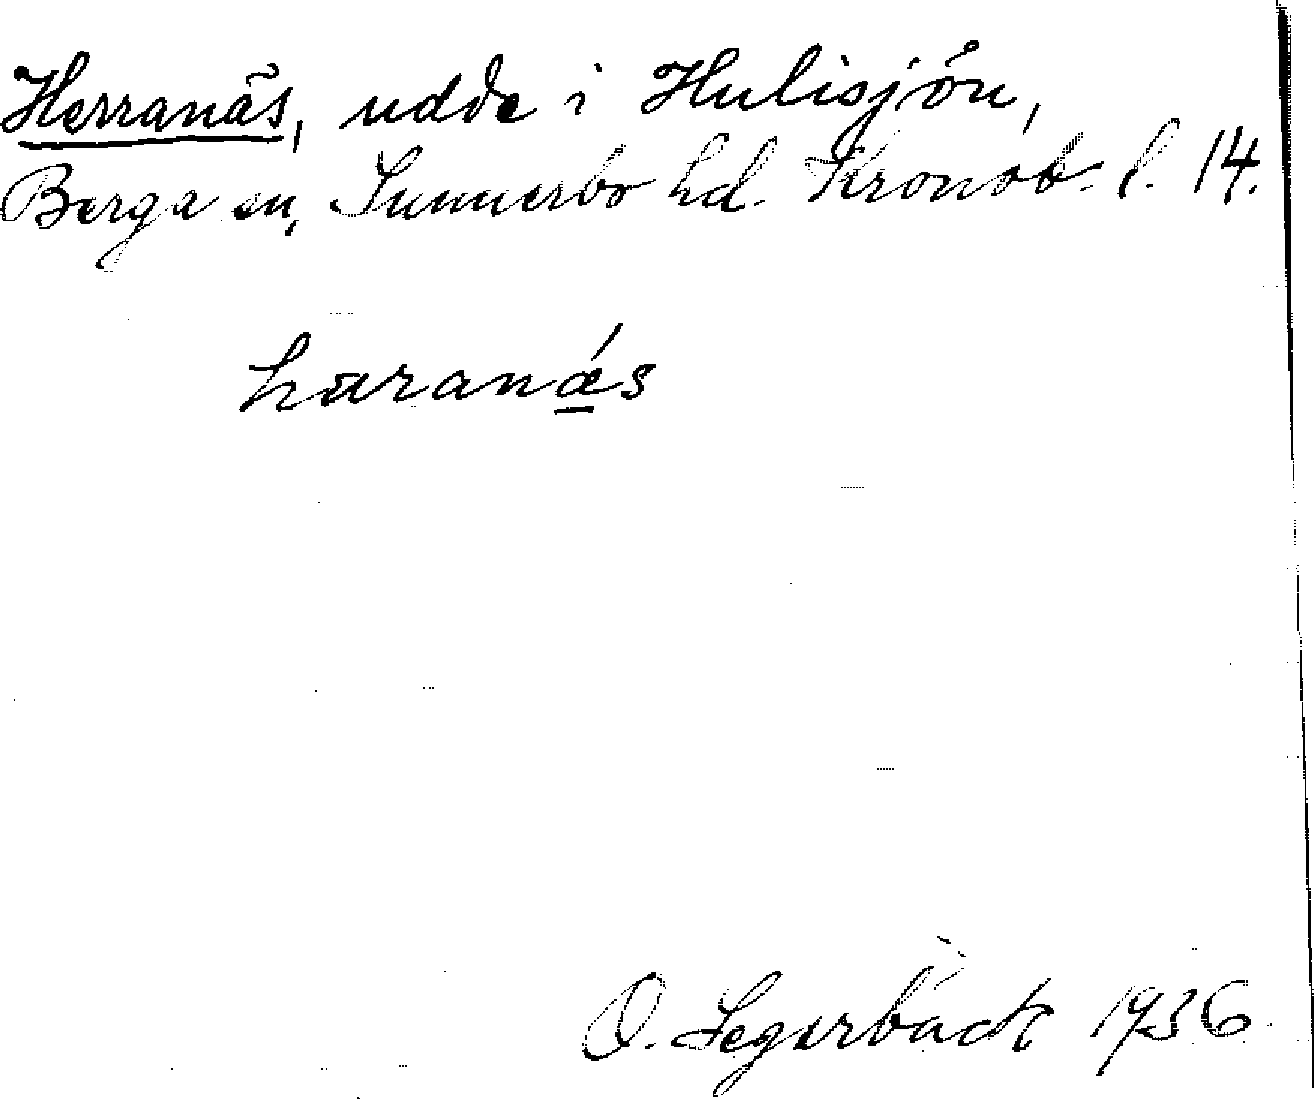 Herranäs, udde i Hulisjön,
Berga sn, Sunnerbo hd. Kronob. l. 14.
haranä́s
O. Segerbäck 1936